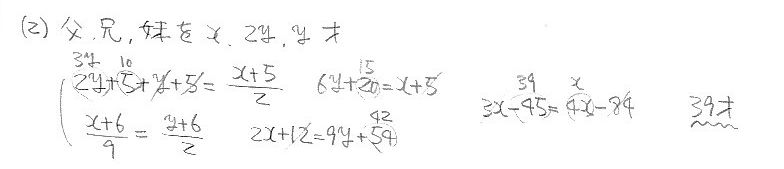 (2) 父, 兄, 妹を x, 2y, y 才
3y 10 15
2y+5+y+5 = (x+5)/2 6y+20=x+5 39 x
(x+6)/9 = (y+6)/2 2x+12=9y+54 42 3x-45=4x-84 39才